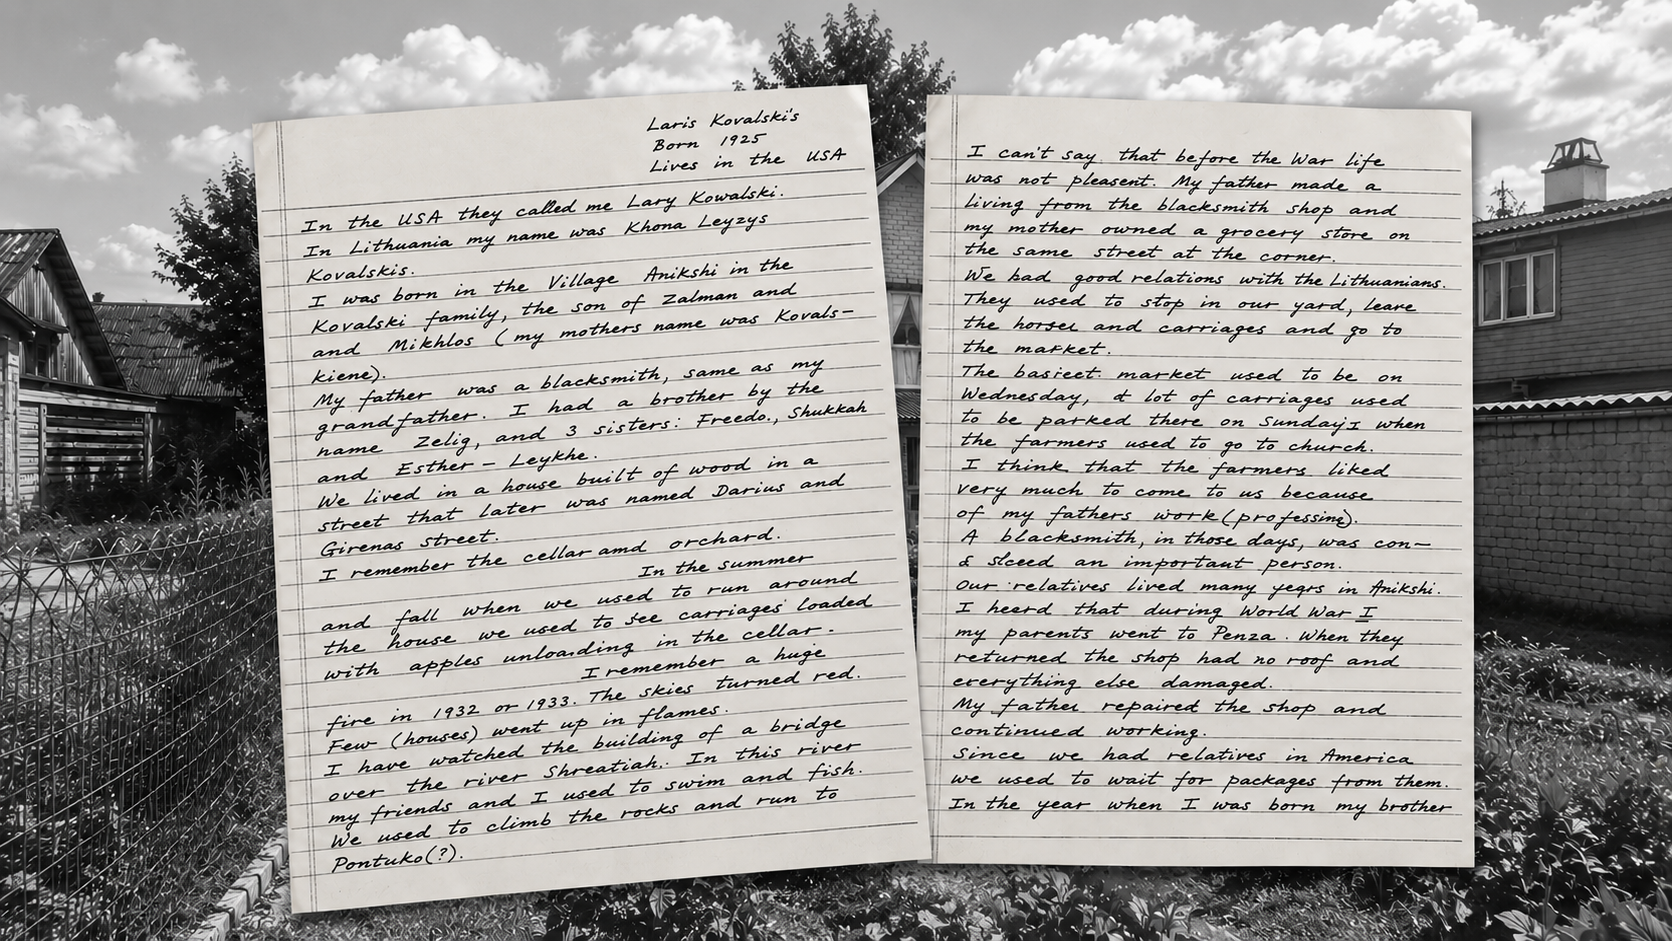 Laris Kovalski's
Born 1925
Lives in the USA
In the USA they called me Lary Kowalski.
In Lithuania my name was Khona Leyzys
Kovalskis.
I was born in the Village Anikshi in the
Kovalski family, the son of Zalman and
and Mikhlos (my mothers name was Kovals-
kiene).
My father was a blacksmith, same as my
grandfather. I had a brother by the
name Zelig, and 3 sisters: Freedo., Shukkah
and Esther - Leykhe.
We lived in a house built of wood in a
street that later was named Darius and
Girenas street.
I remember the cellar amd orchard.
In the summer
and fall when we used to run around
the house we used to see carriages loaded
with apples unloading in the cellar.
I remember a huge
fire in 1932 or 1933. The skies turned red.
Few (houses) went up in flames.
I have watched the building of a bridge
over the river Shreatiah. In this river
my friends and I used to swim and fish.
We used to climb the rocks and run to
Pontuko(?).
I can't say that before the War life
was not pleasent. My father made a
living from the blacksmith shop and
my mother owned a grocery store on
the same street at the corner.
We bad good relations with the Lithuanians.
They used to stop in our yard, leave
the horses and carriages and go to
the market.
The market used to be on
Wednesday, lot of carriages used
to be parked there on when
the farmers used to go to church.
I think that the farmers liked
very much to come to us because
of my fathers work (professing).
A blacksmith, in those days, was con-
sidered an important person.
Our relatives lived many yegrs in Anikshi.
I heerd that during World War I
my parents went to Penza. When they
returned the shop had no roof and
everything else damaged.
My father repaired the shop and
continued working.
Since we had relatives in America
we used to wait for packages from them.
In the year when I was born my brother